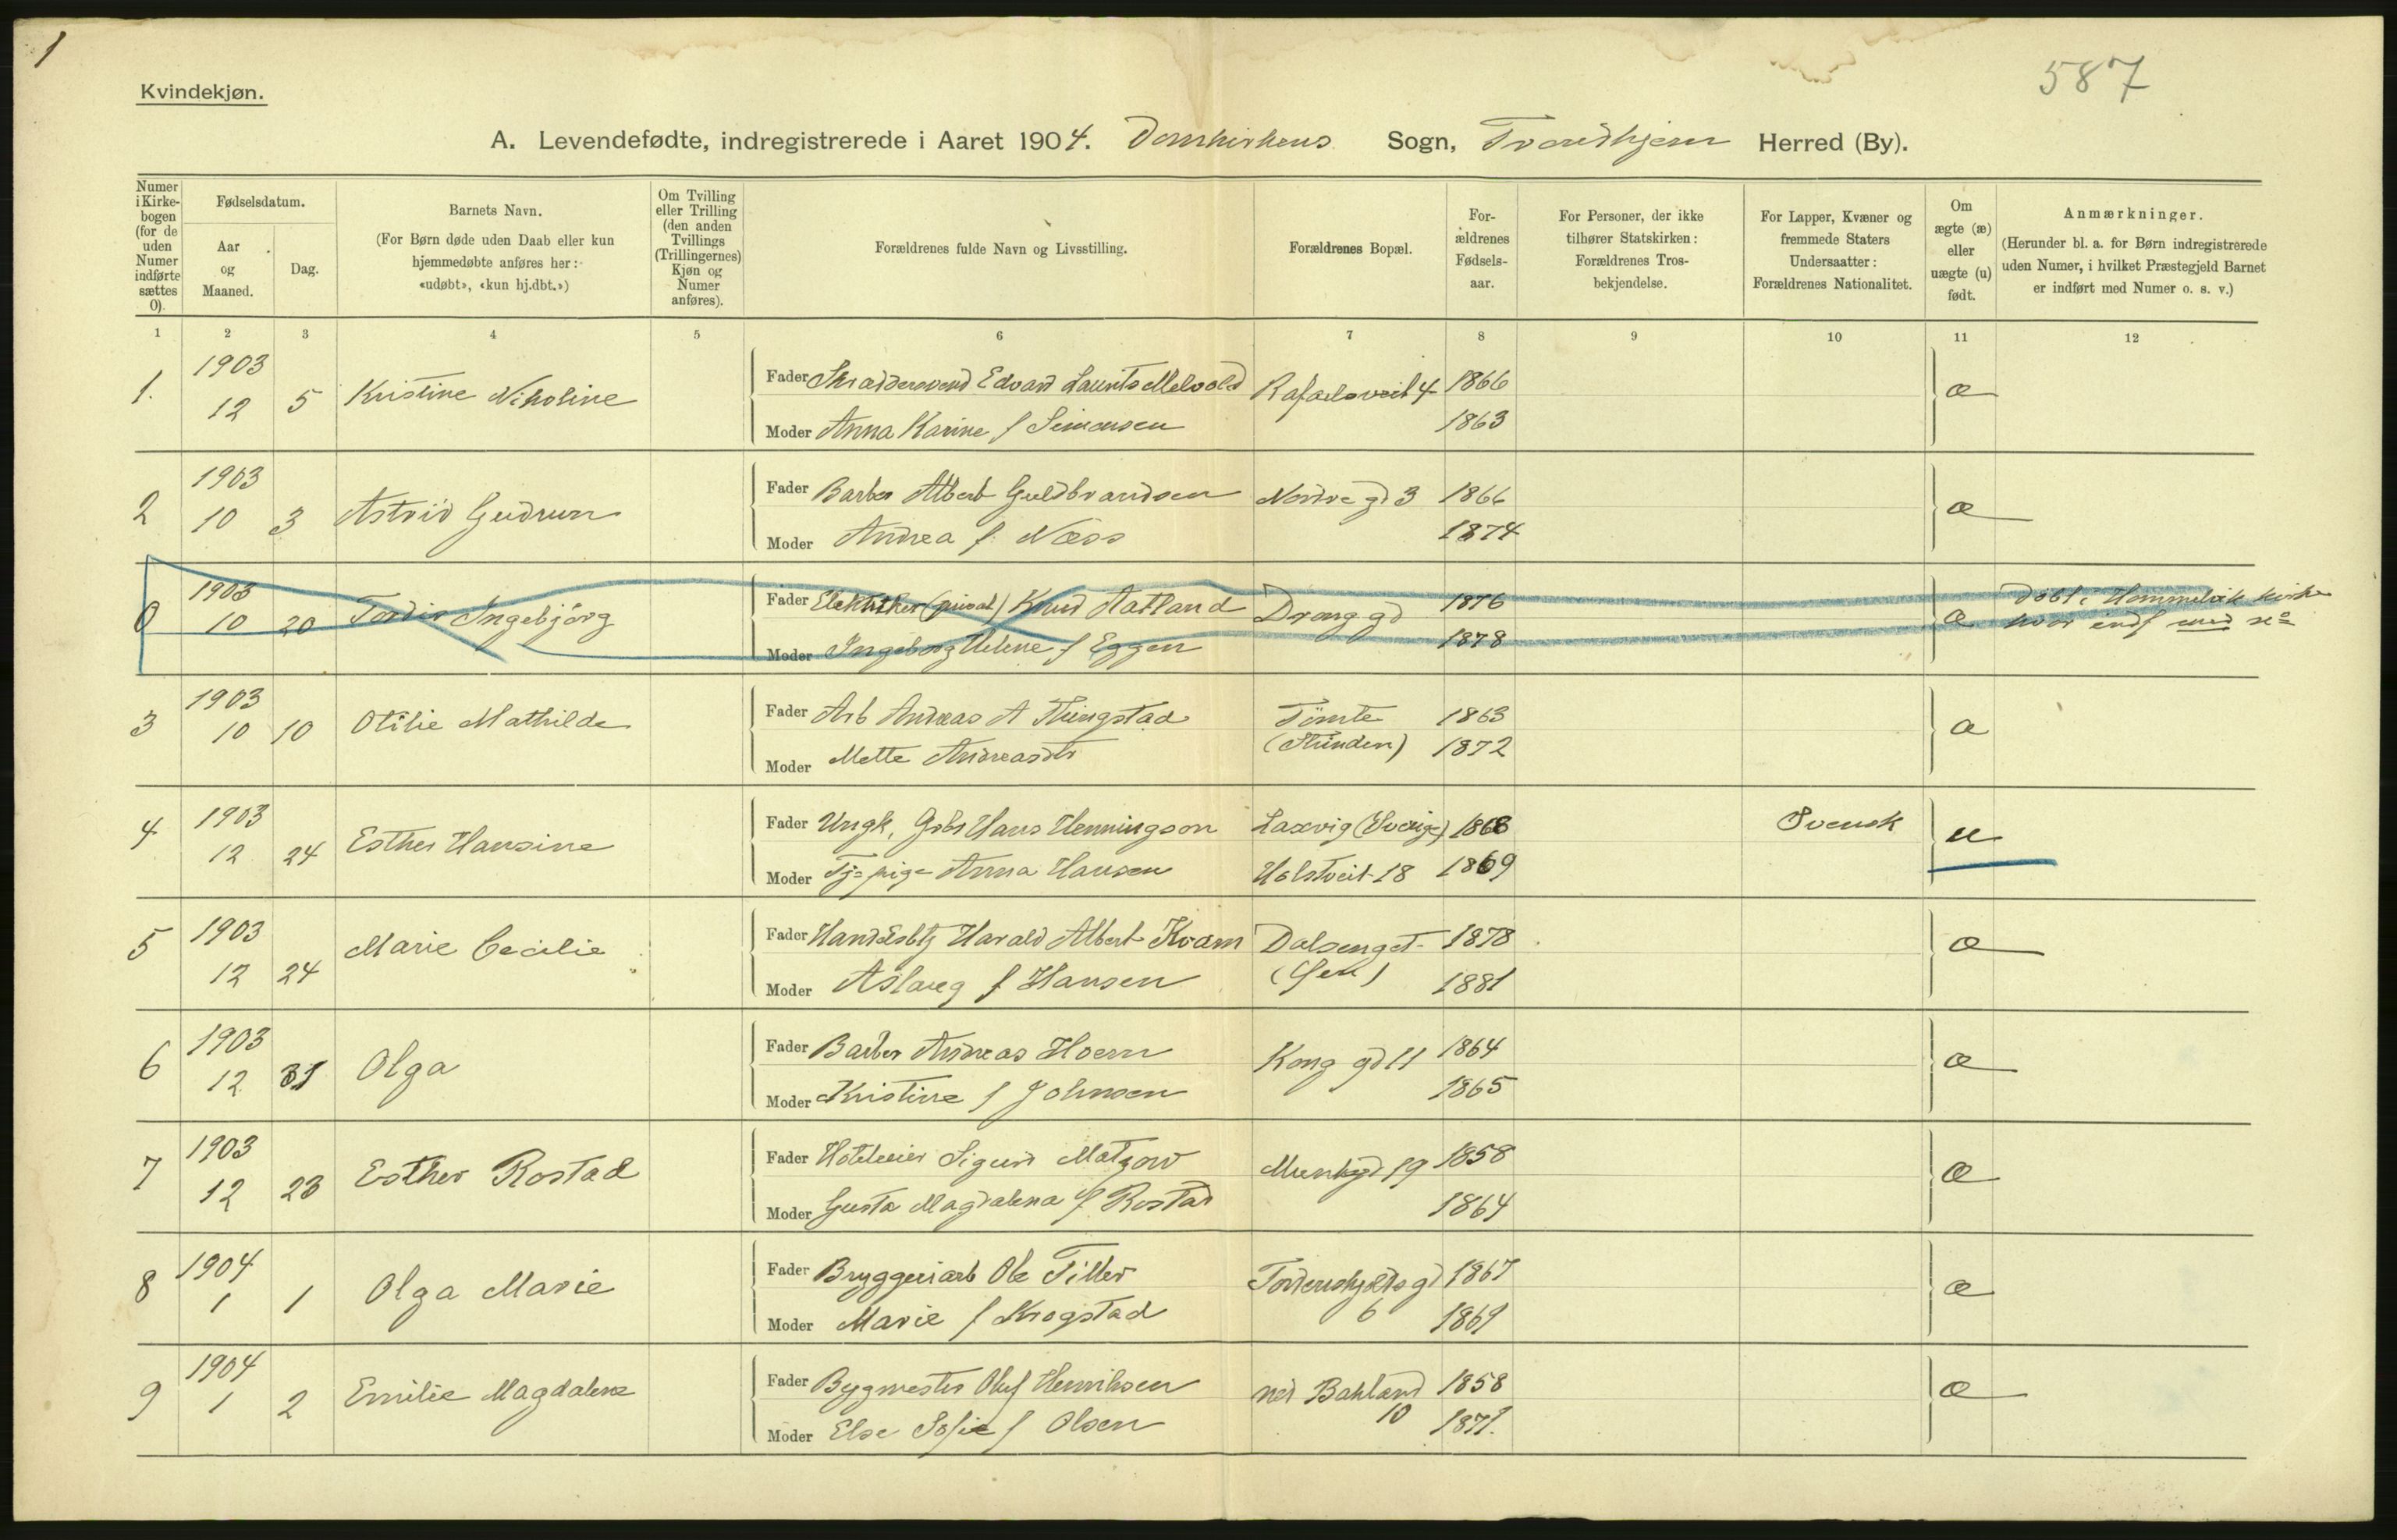 1
587
Kvindekjøn.
A. Levendefødte, indregistrerede i Aaret 1904. Domkirkens Sogn, Trondhjem Herred (By).
Numer i Kirke-bogen (for de uden Numer indførte sættes 0).
Fødselsdatum.
Aar og Maaned.
Dag.
Barnets Navn.
(For Børn døde uden Daab eller kun hjemmedøbte anføres her: «udøbt», «kun hj.dbt.»)
Om Tvilling eller Trilling (den anden Tvillings (Trillingernes) Kjøn og Numer anføres).
Forældrenes fulde Navn og Livsstilling.
Forældrenes Bopæl.
For-ældrenes Fødsels-aar.
For Personer, der ikke tilhører Statskirken: Forældrenes Tros-bekjendelse.
For Lapper, Kvæner og fremmede Staters Undersaatter: Forældrenes Nationalitet.
Om ægte (æ) eller uægte (u) født.
Anmærkninger.
(Herunder bl. a. for Børn indregistrerede uden Numer, i hvilket Præstegjeld Barnet er indført med Numer o. s. v.)
1 2 3 4 5 6 7 8 9 10 11 12
1. 1903 12 5 Kristine Nikoline Fader Skræddersvend Edvard Laurits Melvold Rafaelsveit 4 1866 æ
Moder Anna Karine f Simonsen 1863
2 1903 10 3 Astrid Gudrun Fader Barber Albert Guldbrandsen Nordre gd 3 1866 æ
Moder Andrea f. Næss 1874
0 1903 10 20 Tordis Ingebjörg Fader Elektriker (privat) Knud Hatland Drong gd 1876 æ Döbt i Hommelvik kirke
Moder Ingeborg Helene f Eggen 1878 hvor indf med no
3 1903 10 10 Otilie Mathilde Fader Arb Andreas A Thingstad Tömte 1863 æ
Moder Mette Andreasdtr (Strinden) 1872
4 1903 12 24 Esther Hansine Fader Ungk, Gsbr Hans Henningson Laxvig (Sverige) 1868 Svensk u
Moder Tj= pige Anna Hansen Holstveit 18 1869
5 1903 12 24 Marie Cecilie Fader Handelsbtj Harald Albert Kvam Dalsenget 1878 æ
Moder Aslaug f Hansen 1881
6 1903 12 31 Olga Fader Barber Andreas Hoem Kong gd 11 1864 æ
Moder Kristine f Johnsen 1865
7 1903 12 23 Esther Rostad Fader Hoteleier Sigurd Matzow Munkgd 19 1858 æ
Moder Gusta Magdalena f Rostad 1864
8 1904 1 1 Olga Marie Fader Bryggeriarb Ole Tiller Tordenskjolds gd 1867 æ
Moder Marie f Krogstad 6 1869
9 1904 1 2 Emilie Magdalene Fader Bygmester Oluf Henriksen ned Bakland 1858 æ
Moder Else Sofie f Olsen 10 1871.